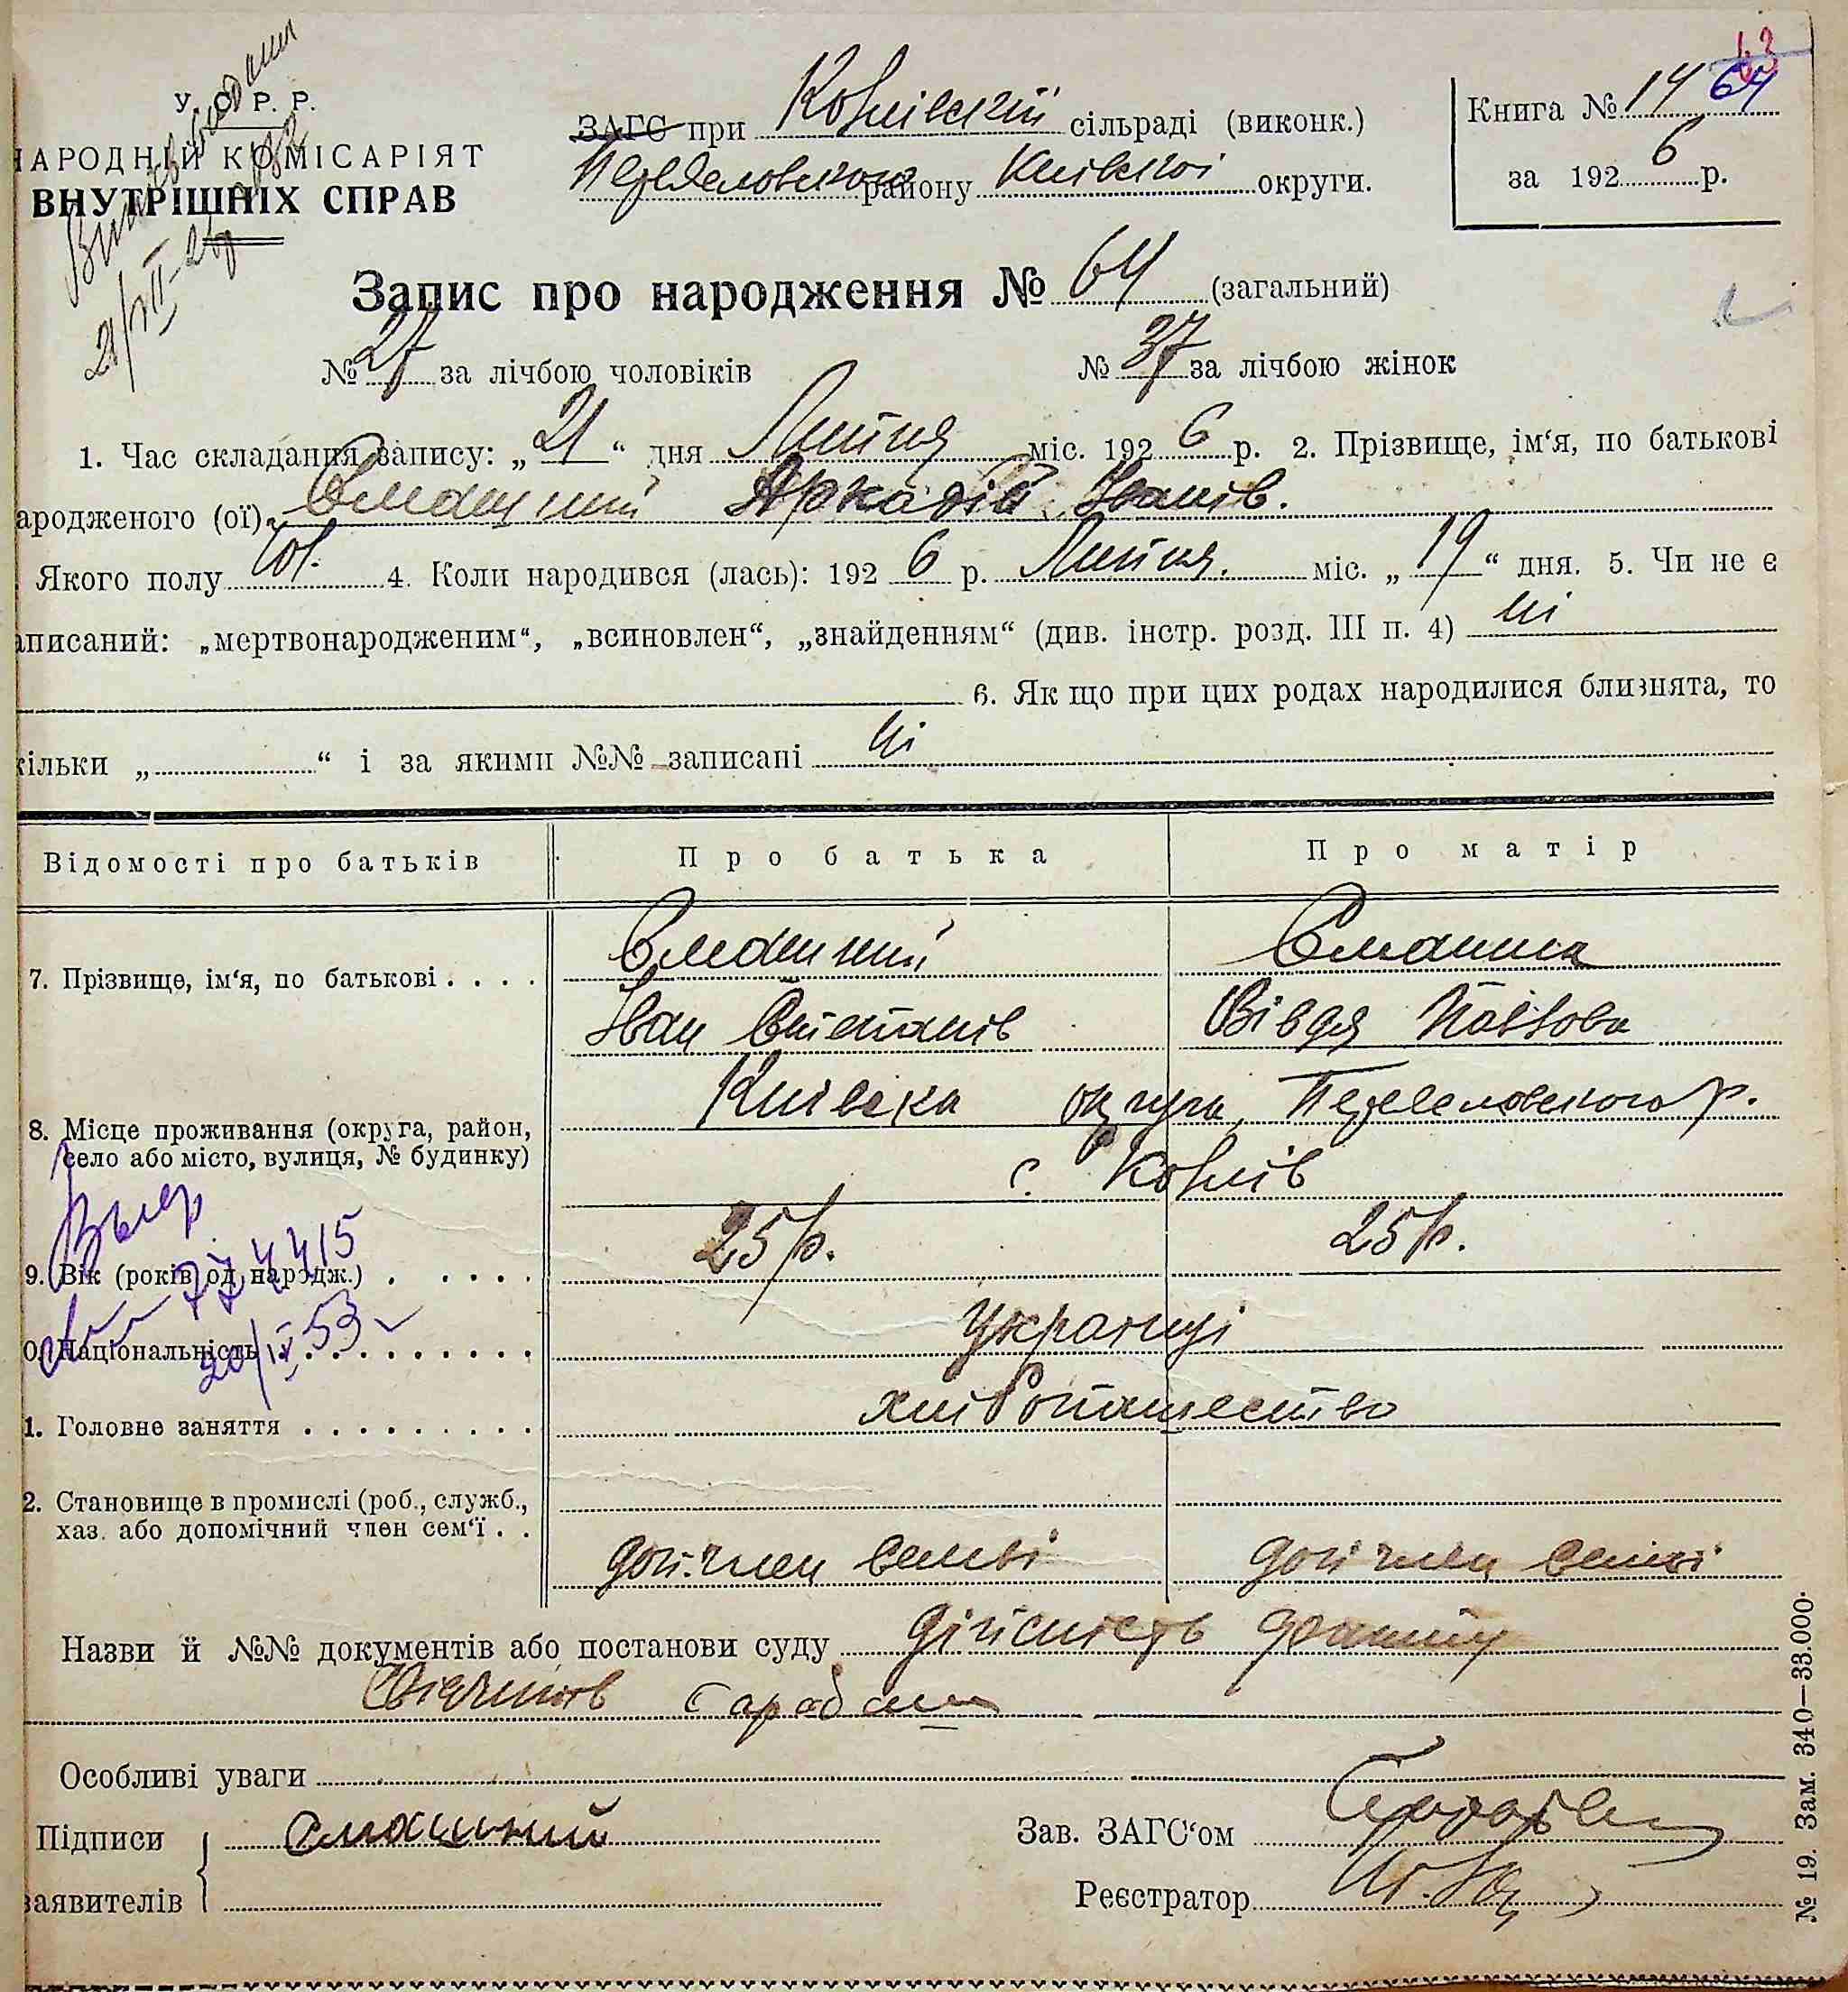 У. С. Р. Р.
НАРОДНІЙ КОМІСАРІЯТ
ВНУТРІШНІХ СПРАВ
ЗАГС при сільраді (виконк.)
району Київської округи.
Книга № 14 64
за 1926 р.
63
21/VII-26 р
Запис про народження № 64 (загальний)
№ 27 за лічбою чоловіків № 37 за лічбою жінок
1. Час складання запису: „21“ дня Липня міс. 1926 р. 2. Прізвище, ім‘я, по батькові
ародженого (ої) Смашний Аркадій Іванів.
Якого полу Чол. 4. Коли народився (лась): 1926 р. Липня. міс. „19“ дня. 5. Чи не є
аписаний: „мертвонародженим“, „всиновлен“, „знайденням“ (див. інстр. розд. III п. 4) ні
6. Як що при цих родах народилися близнята, то
кільки „ “ і за якими №№ записані ні
Відомості про батьків Про батька Про матір
7. Прізвище, ім‘я, по батькові . . . . Смашний Смашна
Іван Степанів Вівдя Павлова
8. Місце проживання (округа, район, село або місто, вулиця, № будинку) Київска округа, р.
с.
9. Вік (років од народж.) . . . . . 25 р. 25 р.
20/IV 53
0. Національність . . . . . . . . . . Українці
1. Головне заняття . . . . . . . . . хліборобство
2. Становище в промислі (роб., служб.,
хаз. або допомічний член сем‘ї . .
доп. член семьі доп член семьі
Назви й №№ документів або постанови суду дійсність
Особливі уваги
Підписи Смашний Зав. ЗАГС‘ом
заявителів Реєстратор
№ 19. Зам. 340—33.000.